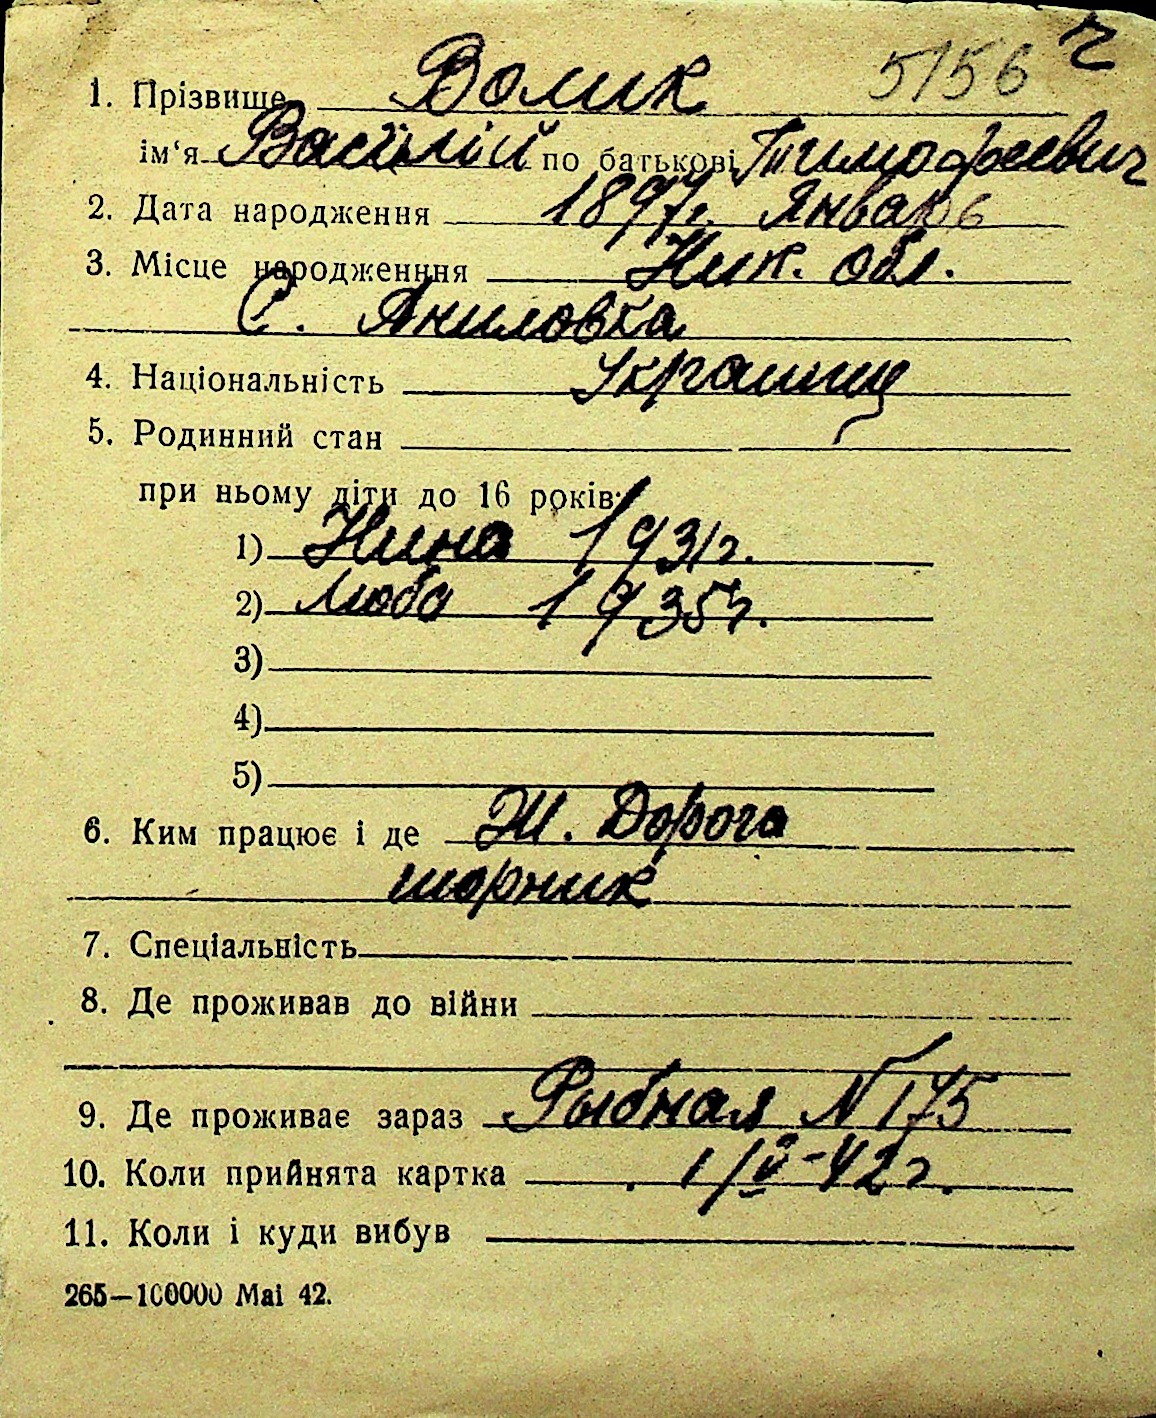 5156 ч
1. Прізвище Волик
ім‘я Васілій по батькові Тимофеевич
2. Дата народження 1897г. Январь
3. Місце народженння Ник. обл.
С. Аниловка
4. Національність Украинец
5. Родинний стан
при ньому діти до 16 років:
1) Нина 1931г.
2) Люба 1935г.
3)
4)
5)
6. Ким працює і де Ж. Дорога
шорник
7. Спеціальність
8. Де проживав до війни
9. Де проживає зараз Рыбная N 175
10. Коли прийнята картка 1/V-42г.
11. Коли і куди вибув
265—100000 Маі 42.